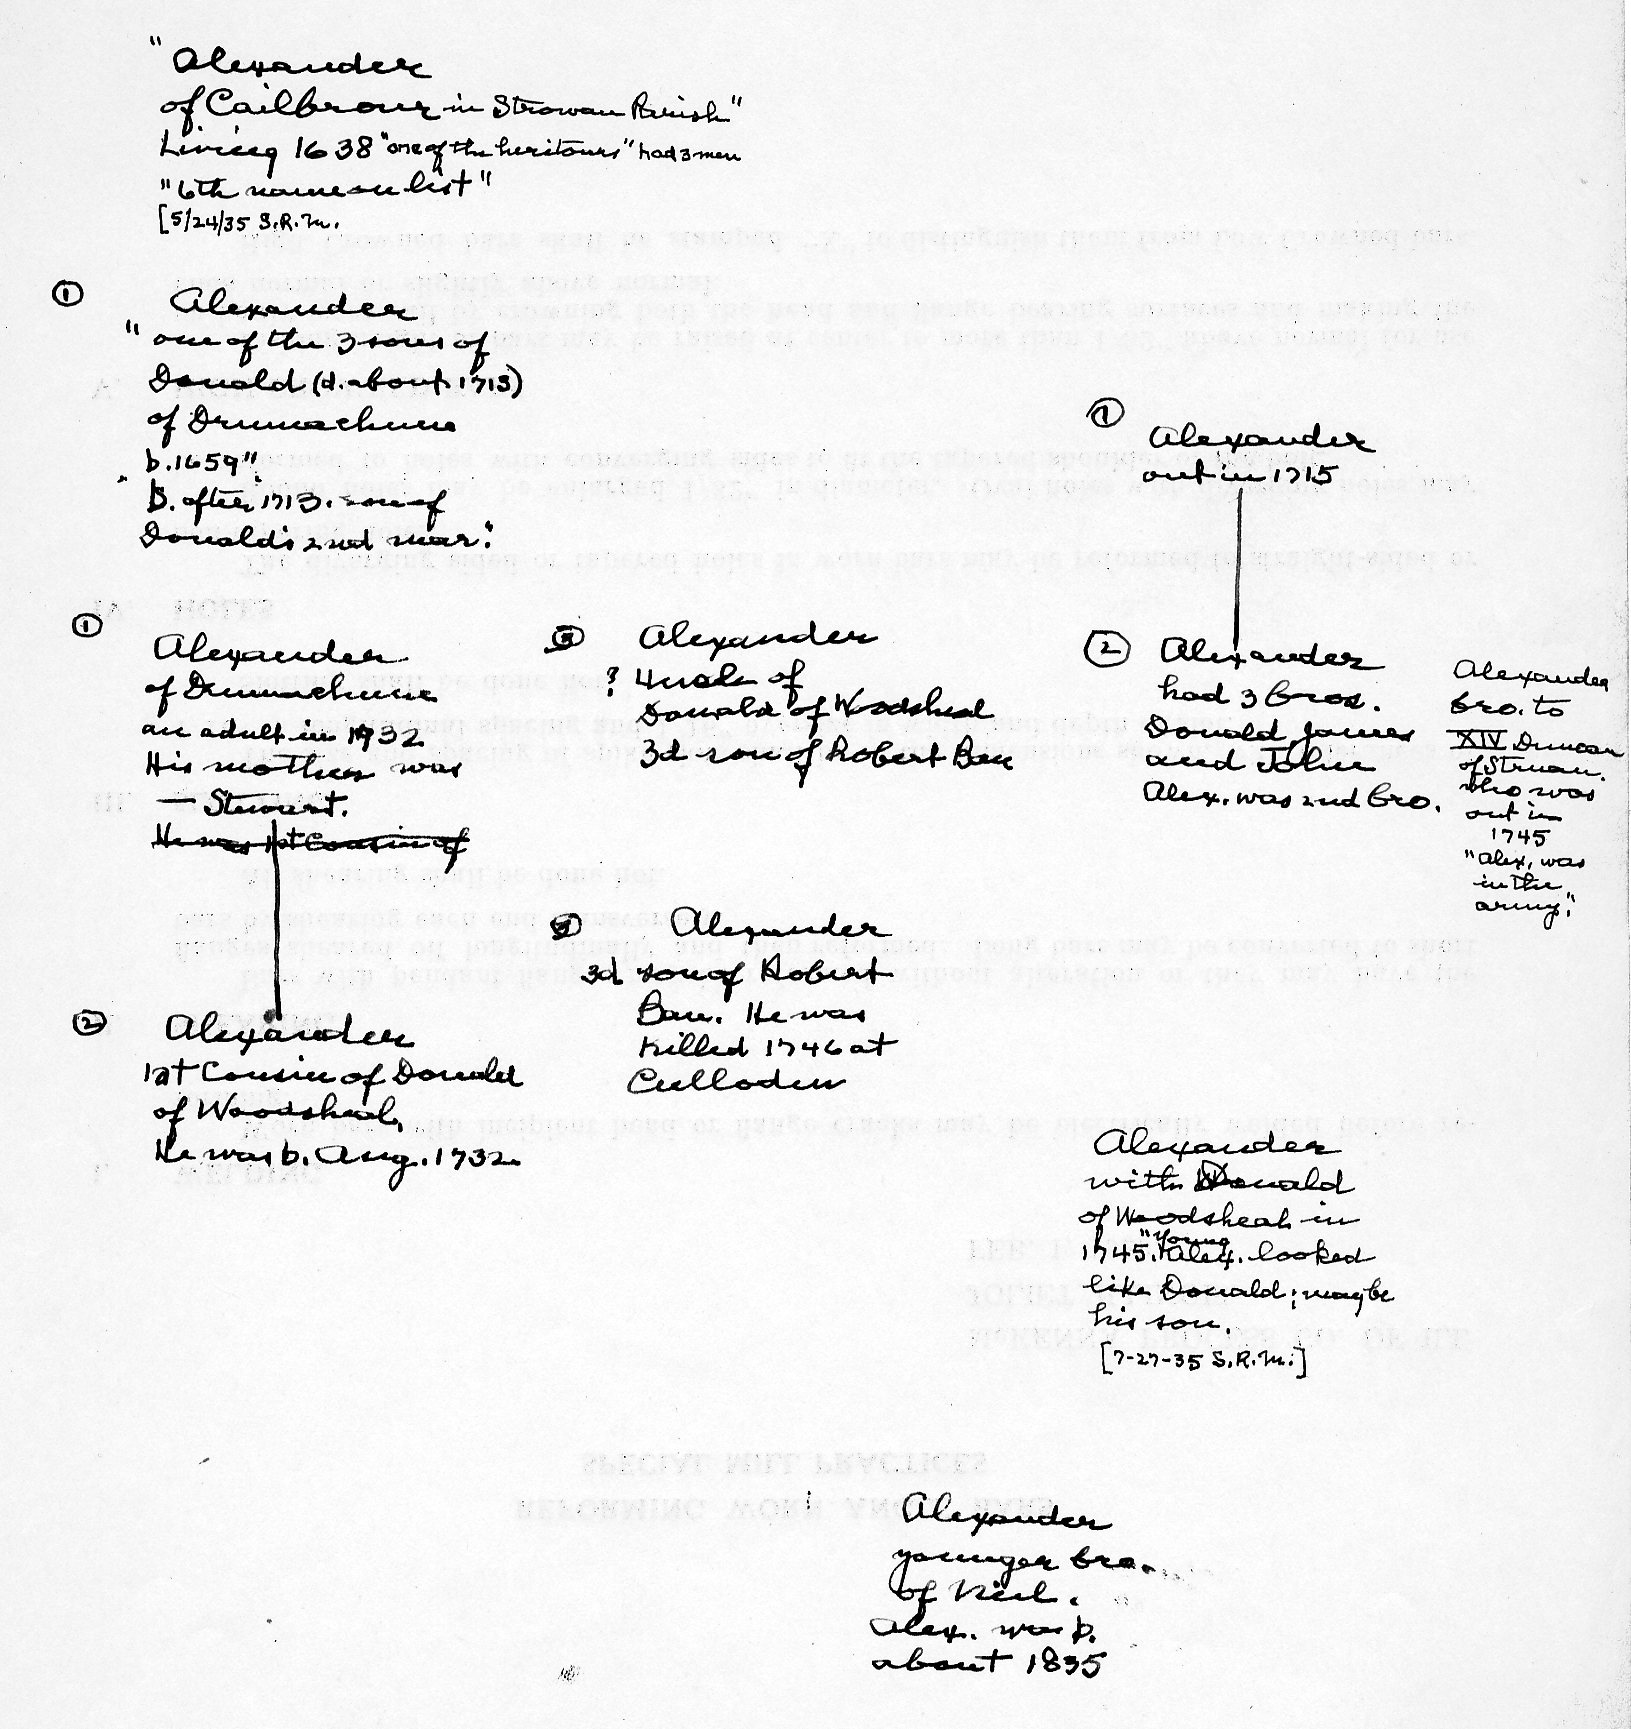 "Alexander
of Cailbrour in Strowan Parish"
Living 1638 "one of the heritours" had 3 men
"6th name on list"
[5/24/35 S.R.M.
① Alexander
"one of the 3 sons of
Donald (d. about 1713)
of Drumachune
b. 1659"
"D. after 1713. son of
Donald's 2nd mar."
① Alexander
of Drumachune
an adult in 1732
His mother was
— Stewart.
He was 1st Cousin of
② Alexander
1st Cousin of Donald
of Woodsheal,
He was b. Aug. 1732.
Alexander
? Uncle of
Donald of Woodsheal
3d son of Robert Ban
Alexander
3d son of Robert
Ban. He was
Killed 1746 at
Culloden
① Alexander
out in 1715
② Alexander
had 3 bros.
Donald James
and John
Alex. was 2nd bro.
Alexander
bro. to
XIV Duncan
of Struan.
who was
out in
1745
"Alex. was
in the
army."
Alexander
with Donald
of Woodsheal in
1745. "Young Alex. looked
like Donald; maybe
his son.
[7-27-35 S.R.M.]
Alexander
younger bro.
of Niel.
Alex. was b.
about 1835